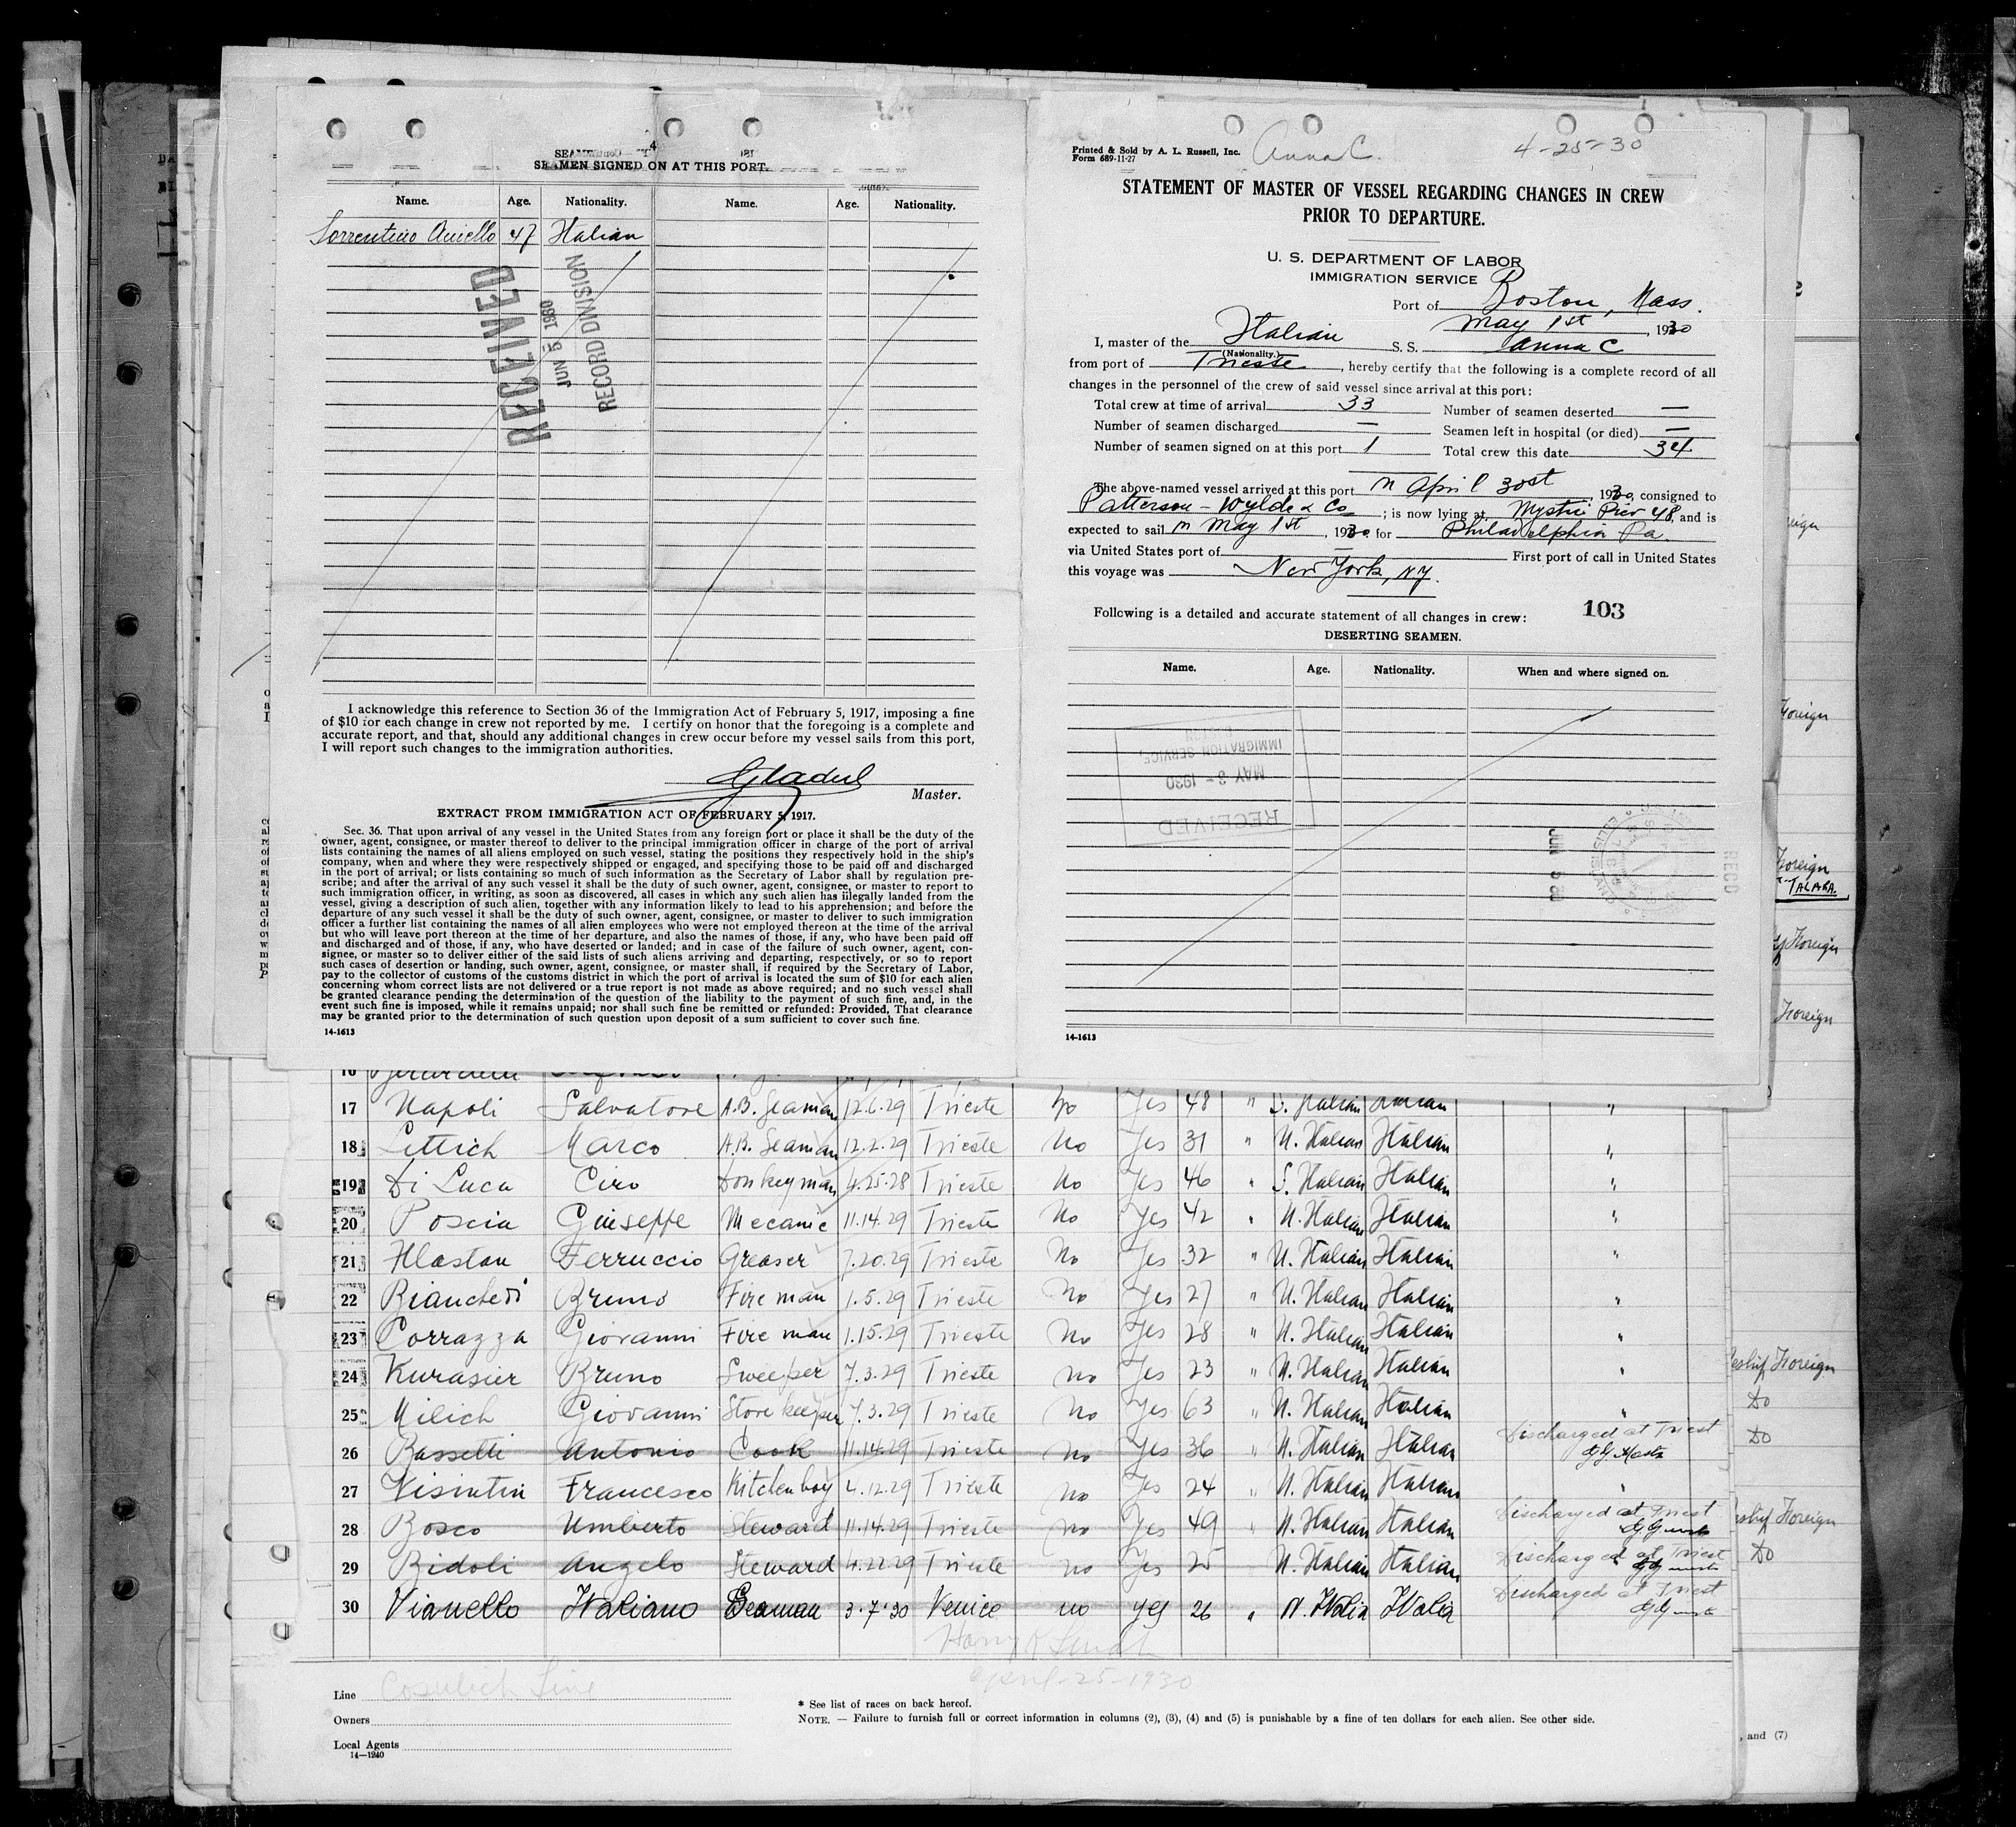 SEAMEN SIGNED ON AT THIS PORT.
Name. Age. Nationality. Name. Age. Nationality.
Sorrentino Aniello 47 Italian
RECEIVED
JUN 5 1930
RECORD DIVISION
I acknowledge this reference to Section 36 of the Immigration Act of February 5, 1917, imposing a fine
of $10 for each change in crew not reported by me. I certify on honor that the foregoing is a complete and
accurate report, and that, should any additional changes in crew occur before my vessel sails from this port,
I will report such changes to the immigration authorities.
Master.
EXTRACT FROM IMMIGRATION ACT OF FEBRUARY 5, 1917.
Sec. 36. That upon arrival of any vessel in the United States from any foreign port or place it shall be the duty of the
owner, agent, consignee, or master thereof to deliver to the principal immigration officer in charge of the port of arrival
lists containing the names of all aliens employed on such vessel, stating the positions they respectively hold in the ship's
company, when and where they were respectively shipped or engaged, and specifying those to be paid off and discharged
in the port of arrival; or lists containing so much of such information as the Secretary of Labor shall by regulation pre-
scribe; and after the arrival of any such vessel it shall be the duty of such owner, agent, consignee, or master to report to
such immigration officer, in writing, as soon as discovered, all cases in which any such alien has illegally landed from the
vessel, giving a description of such alien, together with any information likely to lead to his apprehension; and before the
departure of any such vessel it shall be the duty of such owner, agent, consignee, or master to deliver to such immigration
officer a further list containing the names of all alien employees who were not employed thereon at the time of the arrival
but who will leave port thereon at the time of her departure, and also the names of those, if any, who have been paid off
and discharged and of those, if any, who have deserted or landed; and in case of the failure of such owner, agent, con-
signee, or master so to deliver either of the said lists of such aliens arriving and departing, respectively, or so to report
such cases of desertion or landing, such owner, agent, consignee, or master shall, if required by the Secretary of Labor,
pay to the collector of customs of the customs district in which the port of arrival is located the sum of $10 for each alien
concerning whom correct lists are not delivered or a true report is not made as above required; and no such vessel shall
be granted clearance pending the determination of the question of the liability to the payment of such fine, and, in the
event such fine is imposed, while it remains unpaid; nor shall such fine be remitted or refunded: Provided, That clearance
may be granted prior to the determination of such question upon deposit of a sum sufficient to cover such fine.
14-1613
Printed & Sold by A. L. Russell, Inc.
Form 689-11-27
Anna C. 4-25-30
STATEMENT OF MASTER OF VESSEL REGARDING CHANGES IN CREW
PRIOR TO DEPARTURE.
U. S. DEPARTMENT OF LABOR
IMMIGRATION SERVICE
Port of Boston, Mass.
May 1st, 1930
I, master of the Italian S. S. Anna C
(Nationality.)
from port of Trieste, hereby certify that the following is a complete record of all
changes in the personnel of the crew of said vessel since arrival at this port:
Total crew at time of arrival 33 Number of seamen deserted —
Number of seamen discharged — Seamen left in hospital (or died) —
Number of seamen signed on at this port 1 Total crew this date 34
The above-named vessel arrived at this port n April 30st, 1930, consigned to
Patterson-Wylde & Co; is now lying at Mystic Pier 48, and is
expected to sail n May 1st, 1930 for Philadelphia Pa.
via United States port of — First port of call in United States
this voyage was New York, NY.
Following is a detailed and accurate statement of all changes in crew: 103
DESERTING SEAMEN.
Name. Age. Nationality. When and where signed on.
RECEIVED
MAY 3 - 1930
IMMIGRATION SERVICE,
BOSTON
JUN 5 30
REC'D
14-1613
Foreign
Foreign
TALARA.
Foreign
Foreign
17 Napoli Salvatore A.B. Seaman 12.6.29 Trieste No Yes 48 " S. Italian Italian "
18 Lettich Marco A.B. Seaman 12.2.29 Trieste No Yes 31 " N. Italian Italian "
19 Di Luca Ciro Donkeyman 4.25.28 Trieste No Yes 46 " S. Italian Italian "
20 Poscia Giuseppe Mecanic 11.14.29 Trieste No Yes 42 " N. Italian Italian "
21 Hlastan Ferruccio Greaser 7.20.29 Trieste No Yes 32 " N. Italian Italian "
22 Bianchedi Bruno Fireman 1.5.29 Trieste No Yes 27 " N. Italian Italian "
23 Corrazza Giovanni Fireman 1.15.29 Trieste No Yes 28 " N. Italian Italian "
24 Kurasier Bruno Sweeper 7.3.29 Trieste No Yes 23 " N. Italian Italian "
Foreign
25 Milich Giovanni Storekeeper 7.3.29 Trieste No Yes 63 " N. Italian Italian "
Do
26 Bassetti Antonio Cook 11.14.29 Trieste No Yes 36 " N. Italian Italian Discharged at Triest
Do
27 Visintin Francesco Kitchenboy 4.12.29 Trieste No Yes 24 " N. Italian Italian "
28 Bosco Umberto Steward 11.14.29 Trieste No Yes 49 " N. Italian Italian Discharged at Triest
Foreign
29 Bidoli Angelo Steward 4.22.29 Trieste No Yes 25 N. Italian Italian Discharged at Triest
Do
30 Vianello Italiano Seaman 3.7.30 Venice no yes 26 " N. Italia Italia Discharged at Triest
April-25-1930
Line Cosulich Line
Owners
Local Agents
14—1240
* See list of races on back hereof.
NOTE. — Failure to furnish full or correct information in columns (2), (3), (4) and (5) is punishable by a fine of ten dollars for each alien. See other side.
, and (7)